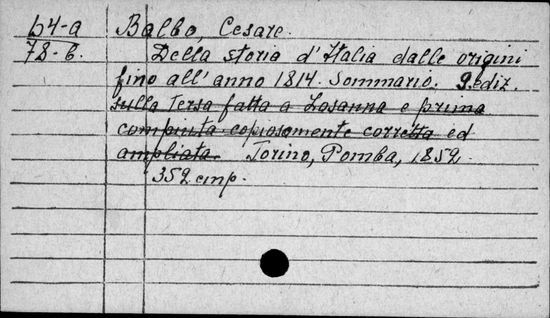 64-a Balbo, Cesare.
78-6. Della storia d'Italia dalle origini
fino all'anno 1814. Sommario. 9.ediz.
sulla Tersa fatta a Losanna e prima
compiuta copiosomente corretta ed
ampliata. Torino, Pomba, 1852.
352 cmp.